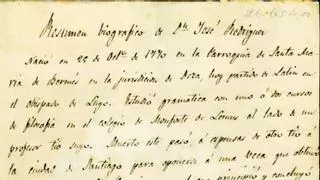 Resumen biografico de Dn José Rodriguez
Nació en 25 de Octe. de 1770 en la Parroquia de Santa Ma-
ria de Bermés en la jurisdicion de Deza, hoy partido de Lalin en
el obispado de Lugo. Estudió gramatica con uno ó dos cursos
de filosofia en el colegio de Monforte de Lemus al lado de un
profesor tio suyo. Muerto este pasó, á espensas de otro tio á
la ciudad de Santiago para oponerse á una veca que obtuvo
principió y concluyó